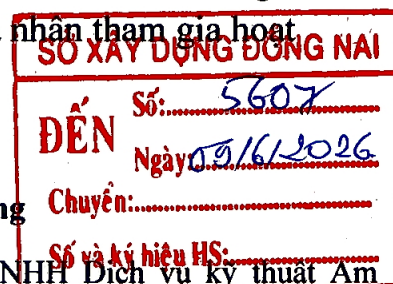 nhân tham gia hoạt
SỞ XÂY DỰNG ĐỒNG NAI
ĐẾN
Số: 5607
Ngày: 09/6/2026
Chuyển:
ng
Số và ký hiệu HS:
NHH Dịch vụ kỹ thuật Am